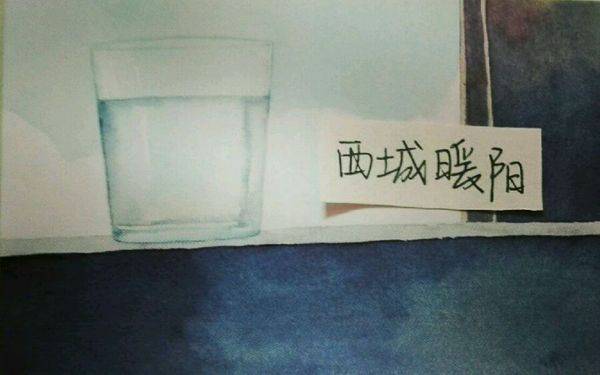 西城暖阳